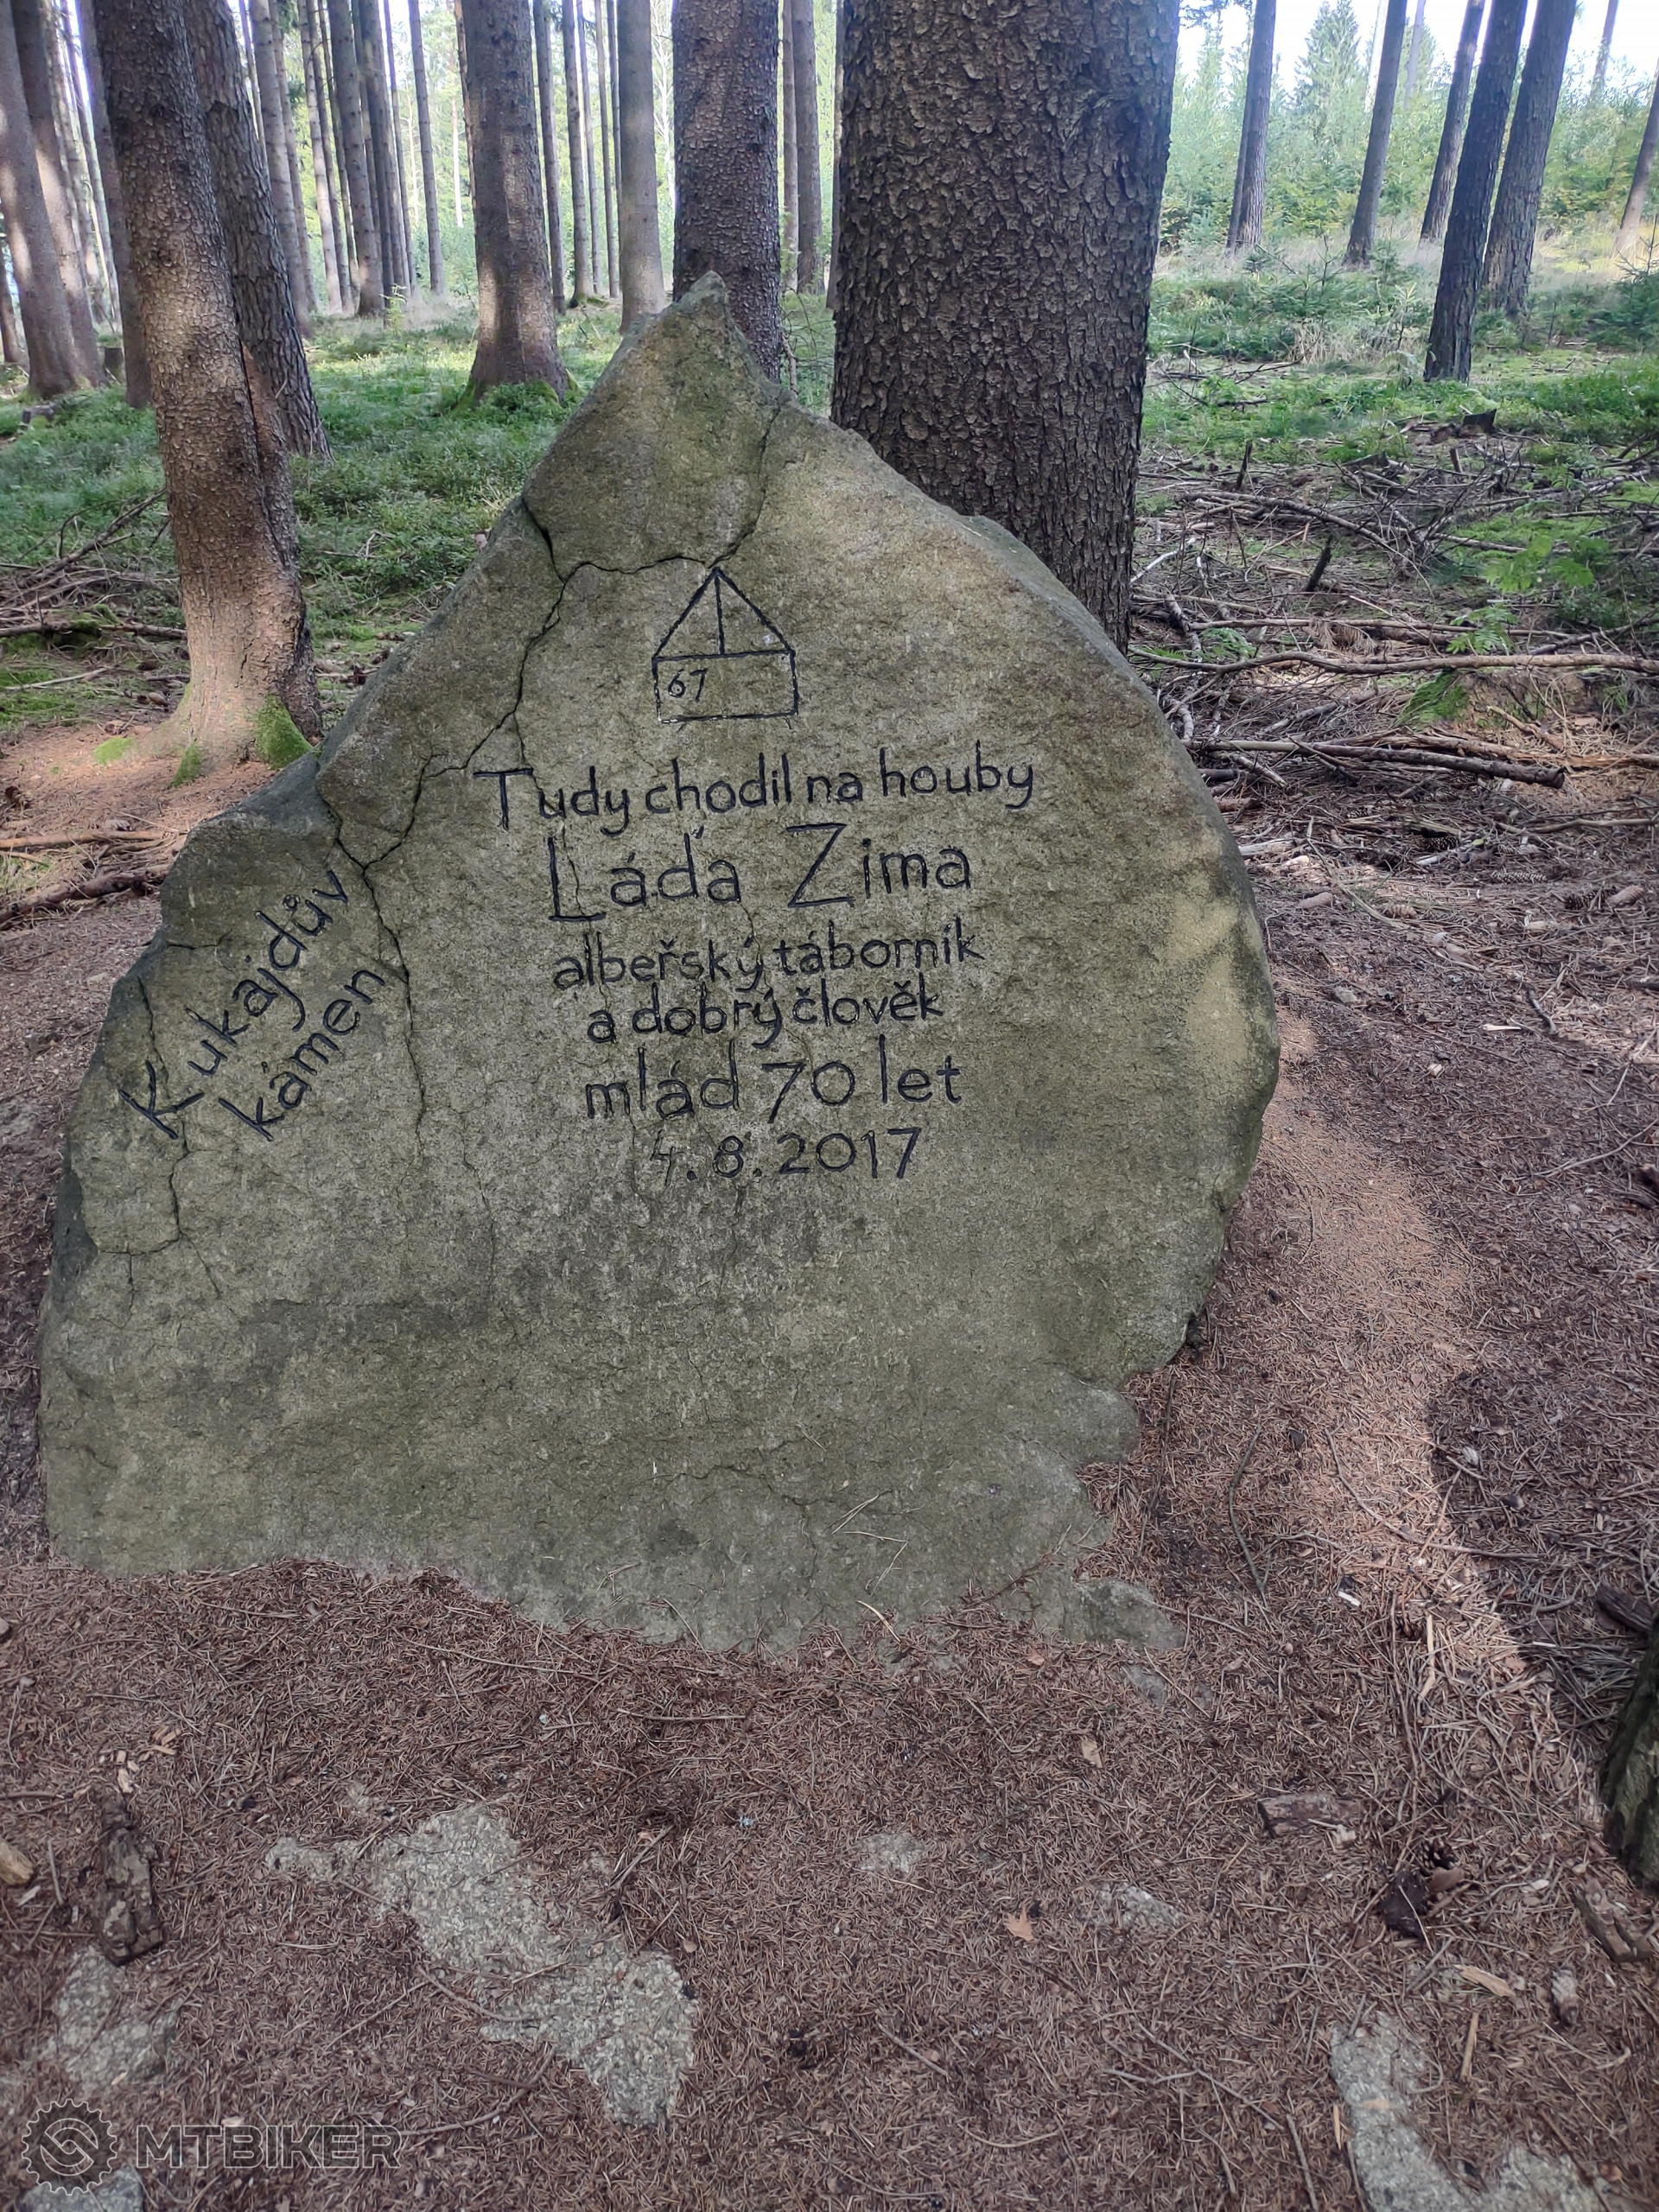 67
Tudy chodil na houby
Láďa Zima
albeřský táborník
a dobrý člověk
mlád 70 let
4.8.2017
Kukajdův
kámen
MTBIKER